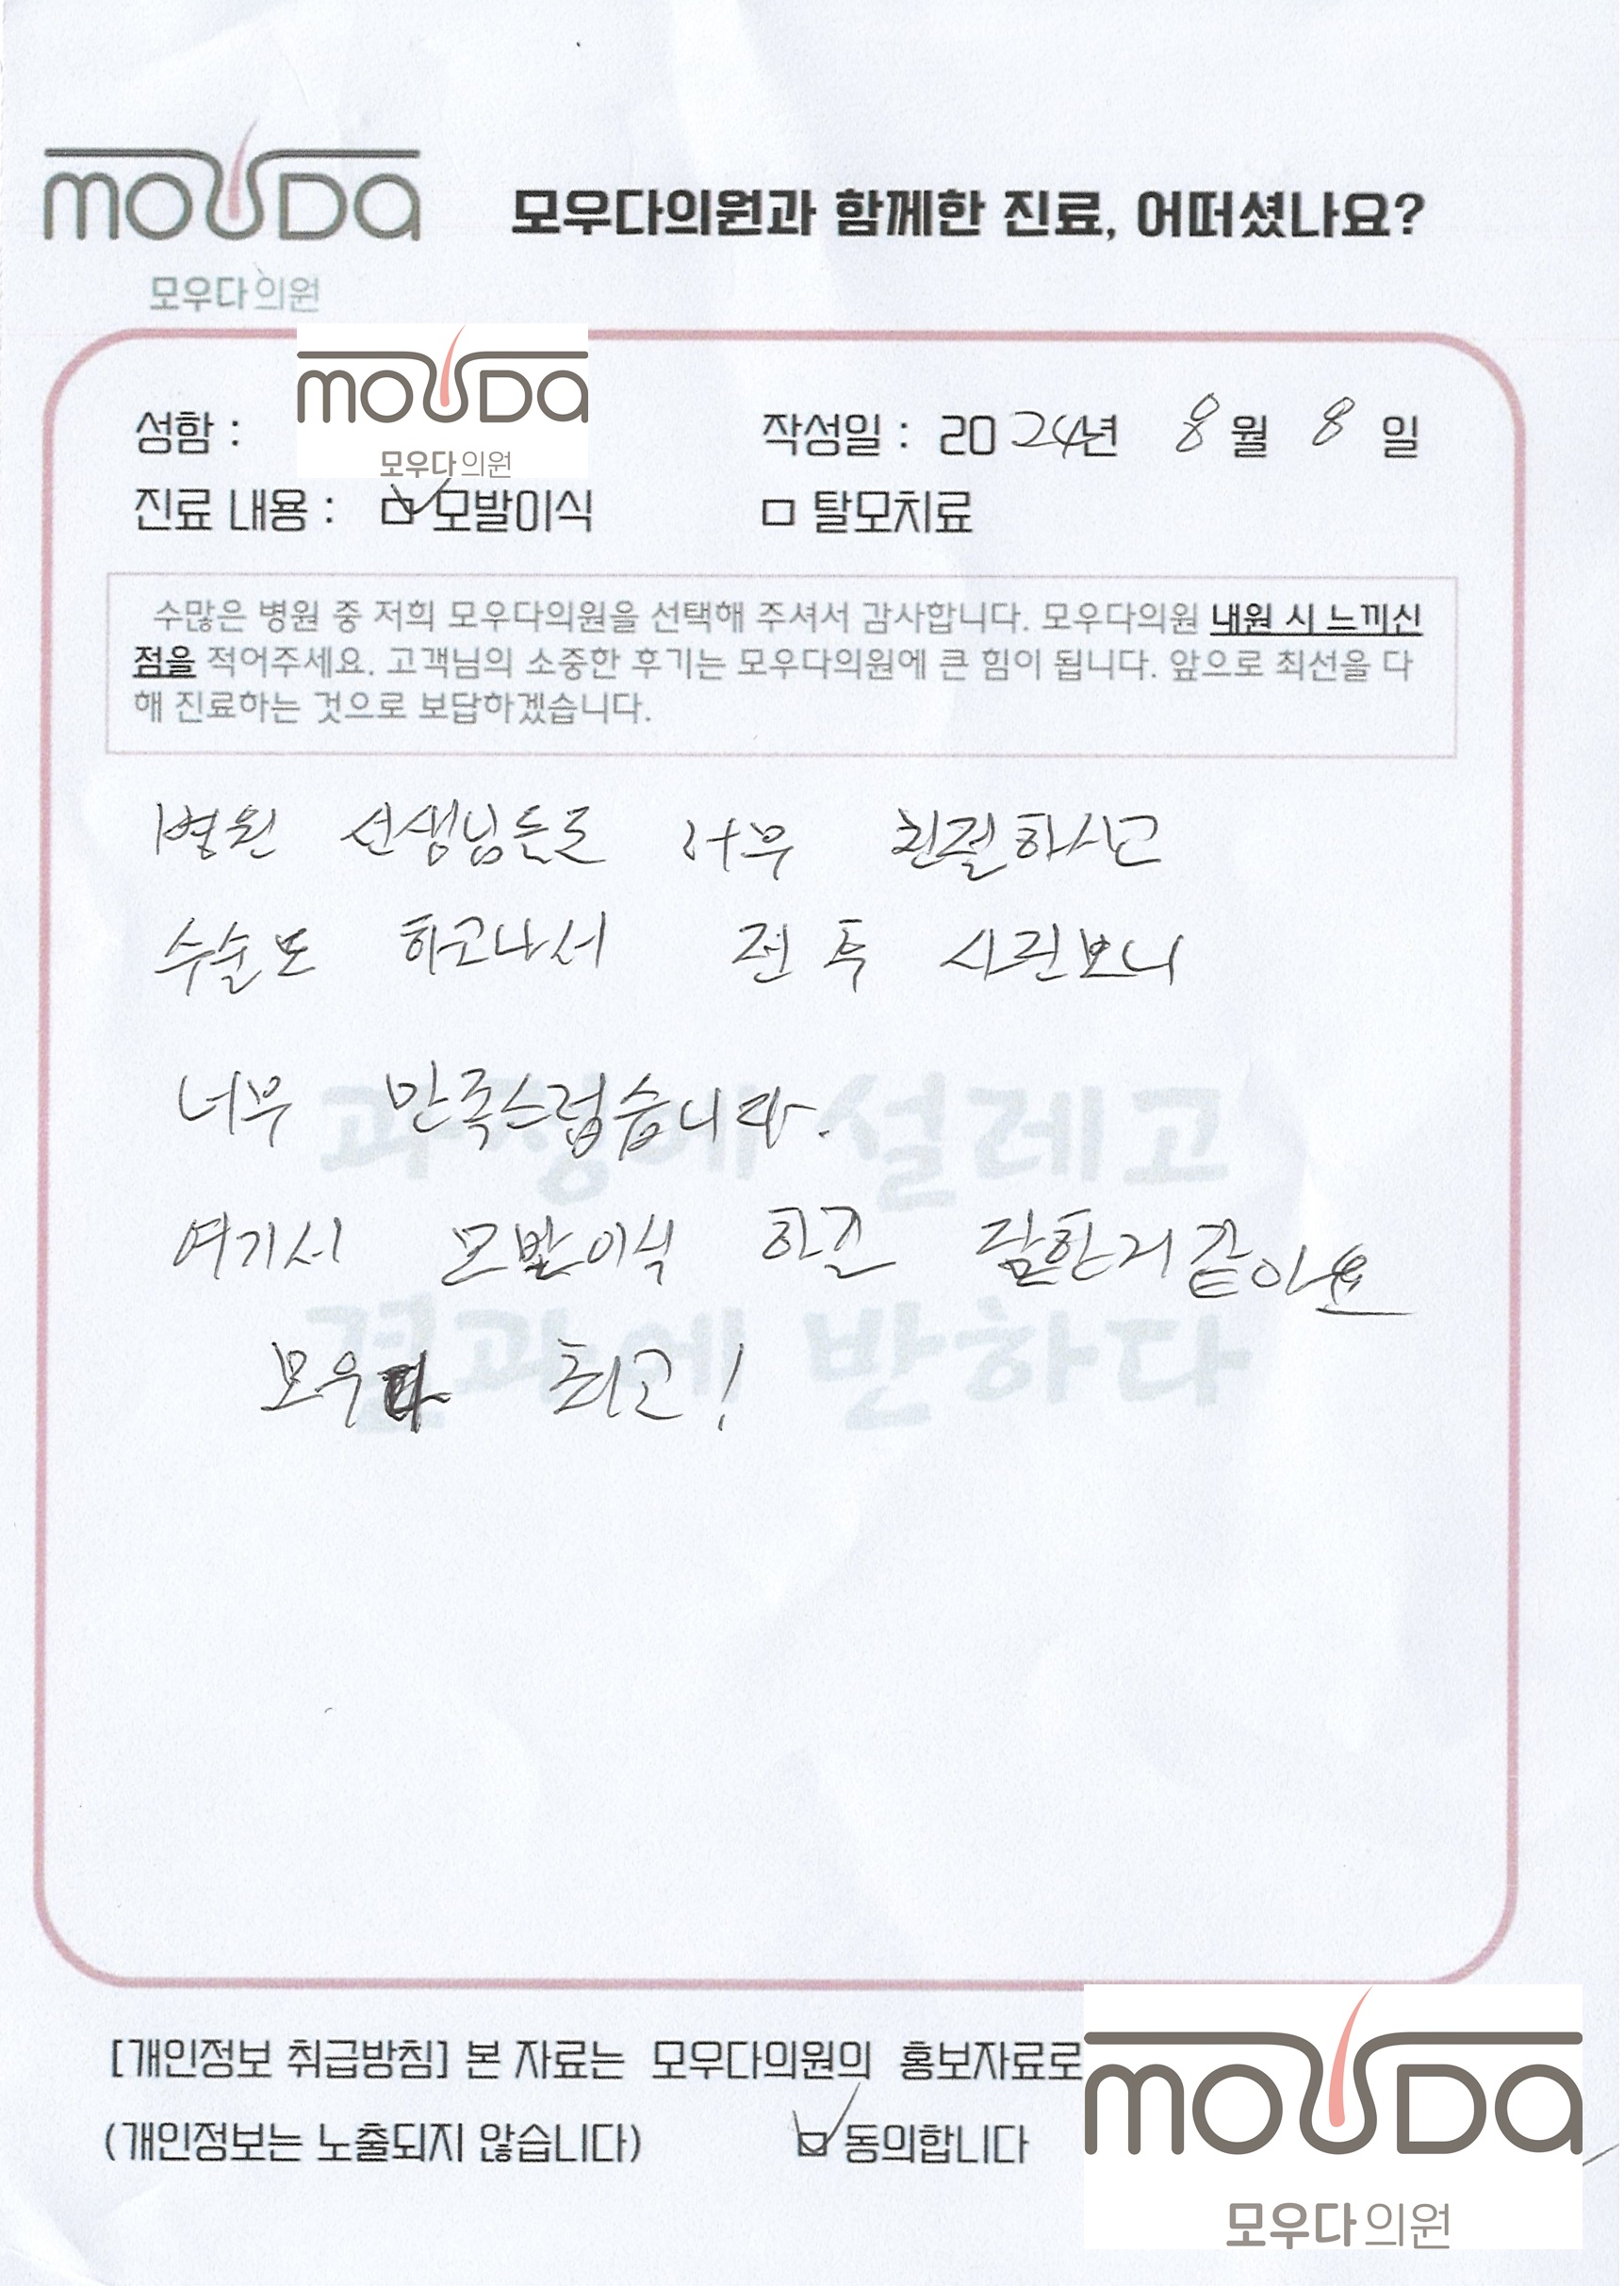 mouda
모우다의원
모우다의원과 함께한 진료, 어떠셨나요?
mouda
모우다의원
성함 :
작성일 : 2024년 8월 8일
진료 내용 : 모발이식 탈모치료
수많은 병원 중 저희 모우다의원을 선택해 주셔서 감사합니다. 모우다의원 내원 시 느끼신
점을 적어주세요. 고객님의 소중한 후기는 모우다의원에 큰 힘이 됩니다. 앞으로 최선을 다
해 진료하는 것으로 보답하겠습니다.
병원 선생님들도 너무 친절하시고
수술도 하고나서 전 후 사진보니
너무 만족스럽습니다.
여기서 모발이식 하길 잘한거같아요
모우다 최고!
과정에 설레고
결과에 반하다
[개인정보 취급방침] 본 자료는 모우다의원의 홍보자료로
(개인정보는 노출되지 않습니다) 동의합니다
mouda
모우다의원